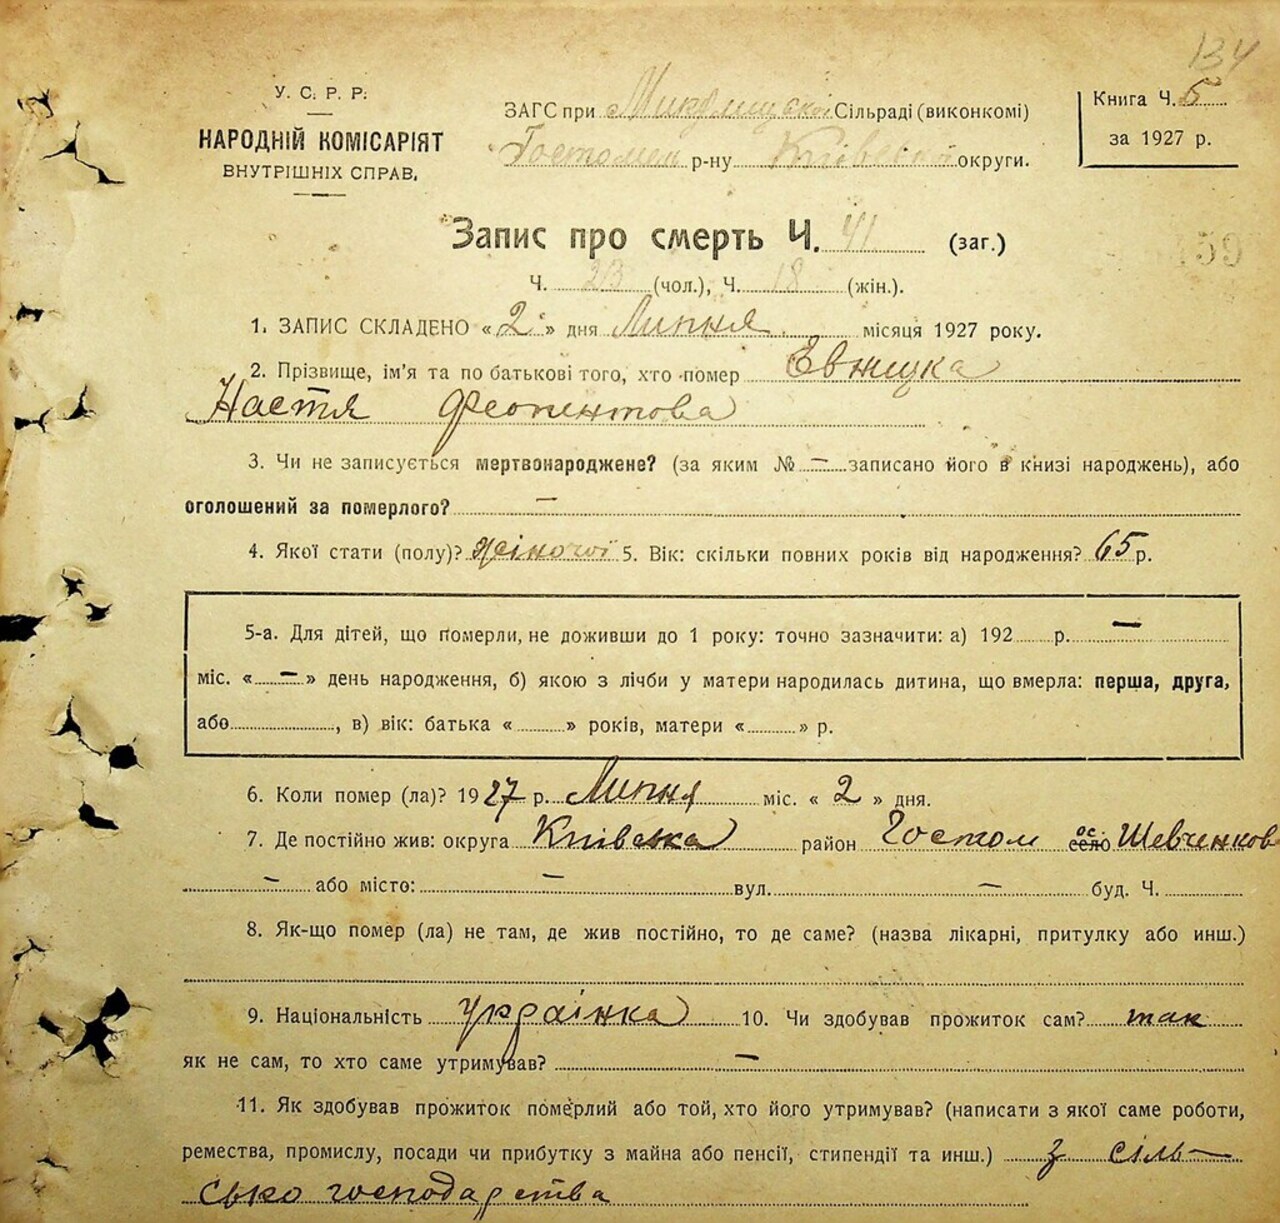 134
У. С. Р. Р.
НАРОДНІЙ КОМІСАРІЯТ
ВНУТРІШНІХ СПРАВ.
ЗАГС при Микулицькой Сільраді (виконкомі)
Гостомел р-ну Київської округи.
Книга Ч. 5
за 1927 р.
Запис про смерть Ч. 41 (заг.)
Ч. 23 (чол.), Ч. 18 (жін.).
1. ЗАПИС СКЛАДЕНО «2» дня Липня місяця 1927 року.
2. Прізвище, ім'я та по батькові того, хто помер
Настя
3. Чи не записується мертвонароджене? (за яким № — записано його в книзі народжень), або
оголошений за померлого? —
4. Якої стати (полу)? жіночої 5. Вік: скільки повних років від народження? 65 р.
5-а. Для дітей, що померли, не доживши до 1 року: точно зазначити: а) 192 р. —
міс. « — » день народження, б) якою з лічби у матери народилась дитина, що вмерла: перша, друга,
або , в) вік: батька « » років, матери « » р.
6. Коли помер (ла)? 1927 р. Липня міс. « 2 » дня.
7. Де постійно жив: округа Київська район Гостом село ос Шевченков
— або місто: — вул. — буд. Ч.
8. Як-що помер (ла) не там, де жив постійно, то де саме? (назва лікарні, притулку або инш.)
9. Національність українка 10. Чи здобував прожиток сам? так
як не сам, то хто саме утримував? —
11. Як здобував прожиток померлий або той, хто його утримував? (написати з якої саме роботи,
ремества, промислу, посади чи прибутку з майна або пенсії, стипендії та инш.) з сіль-
сько господарства